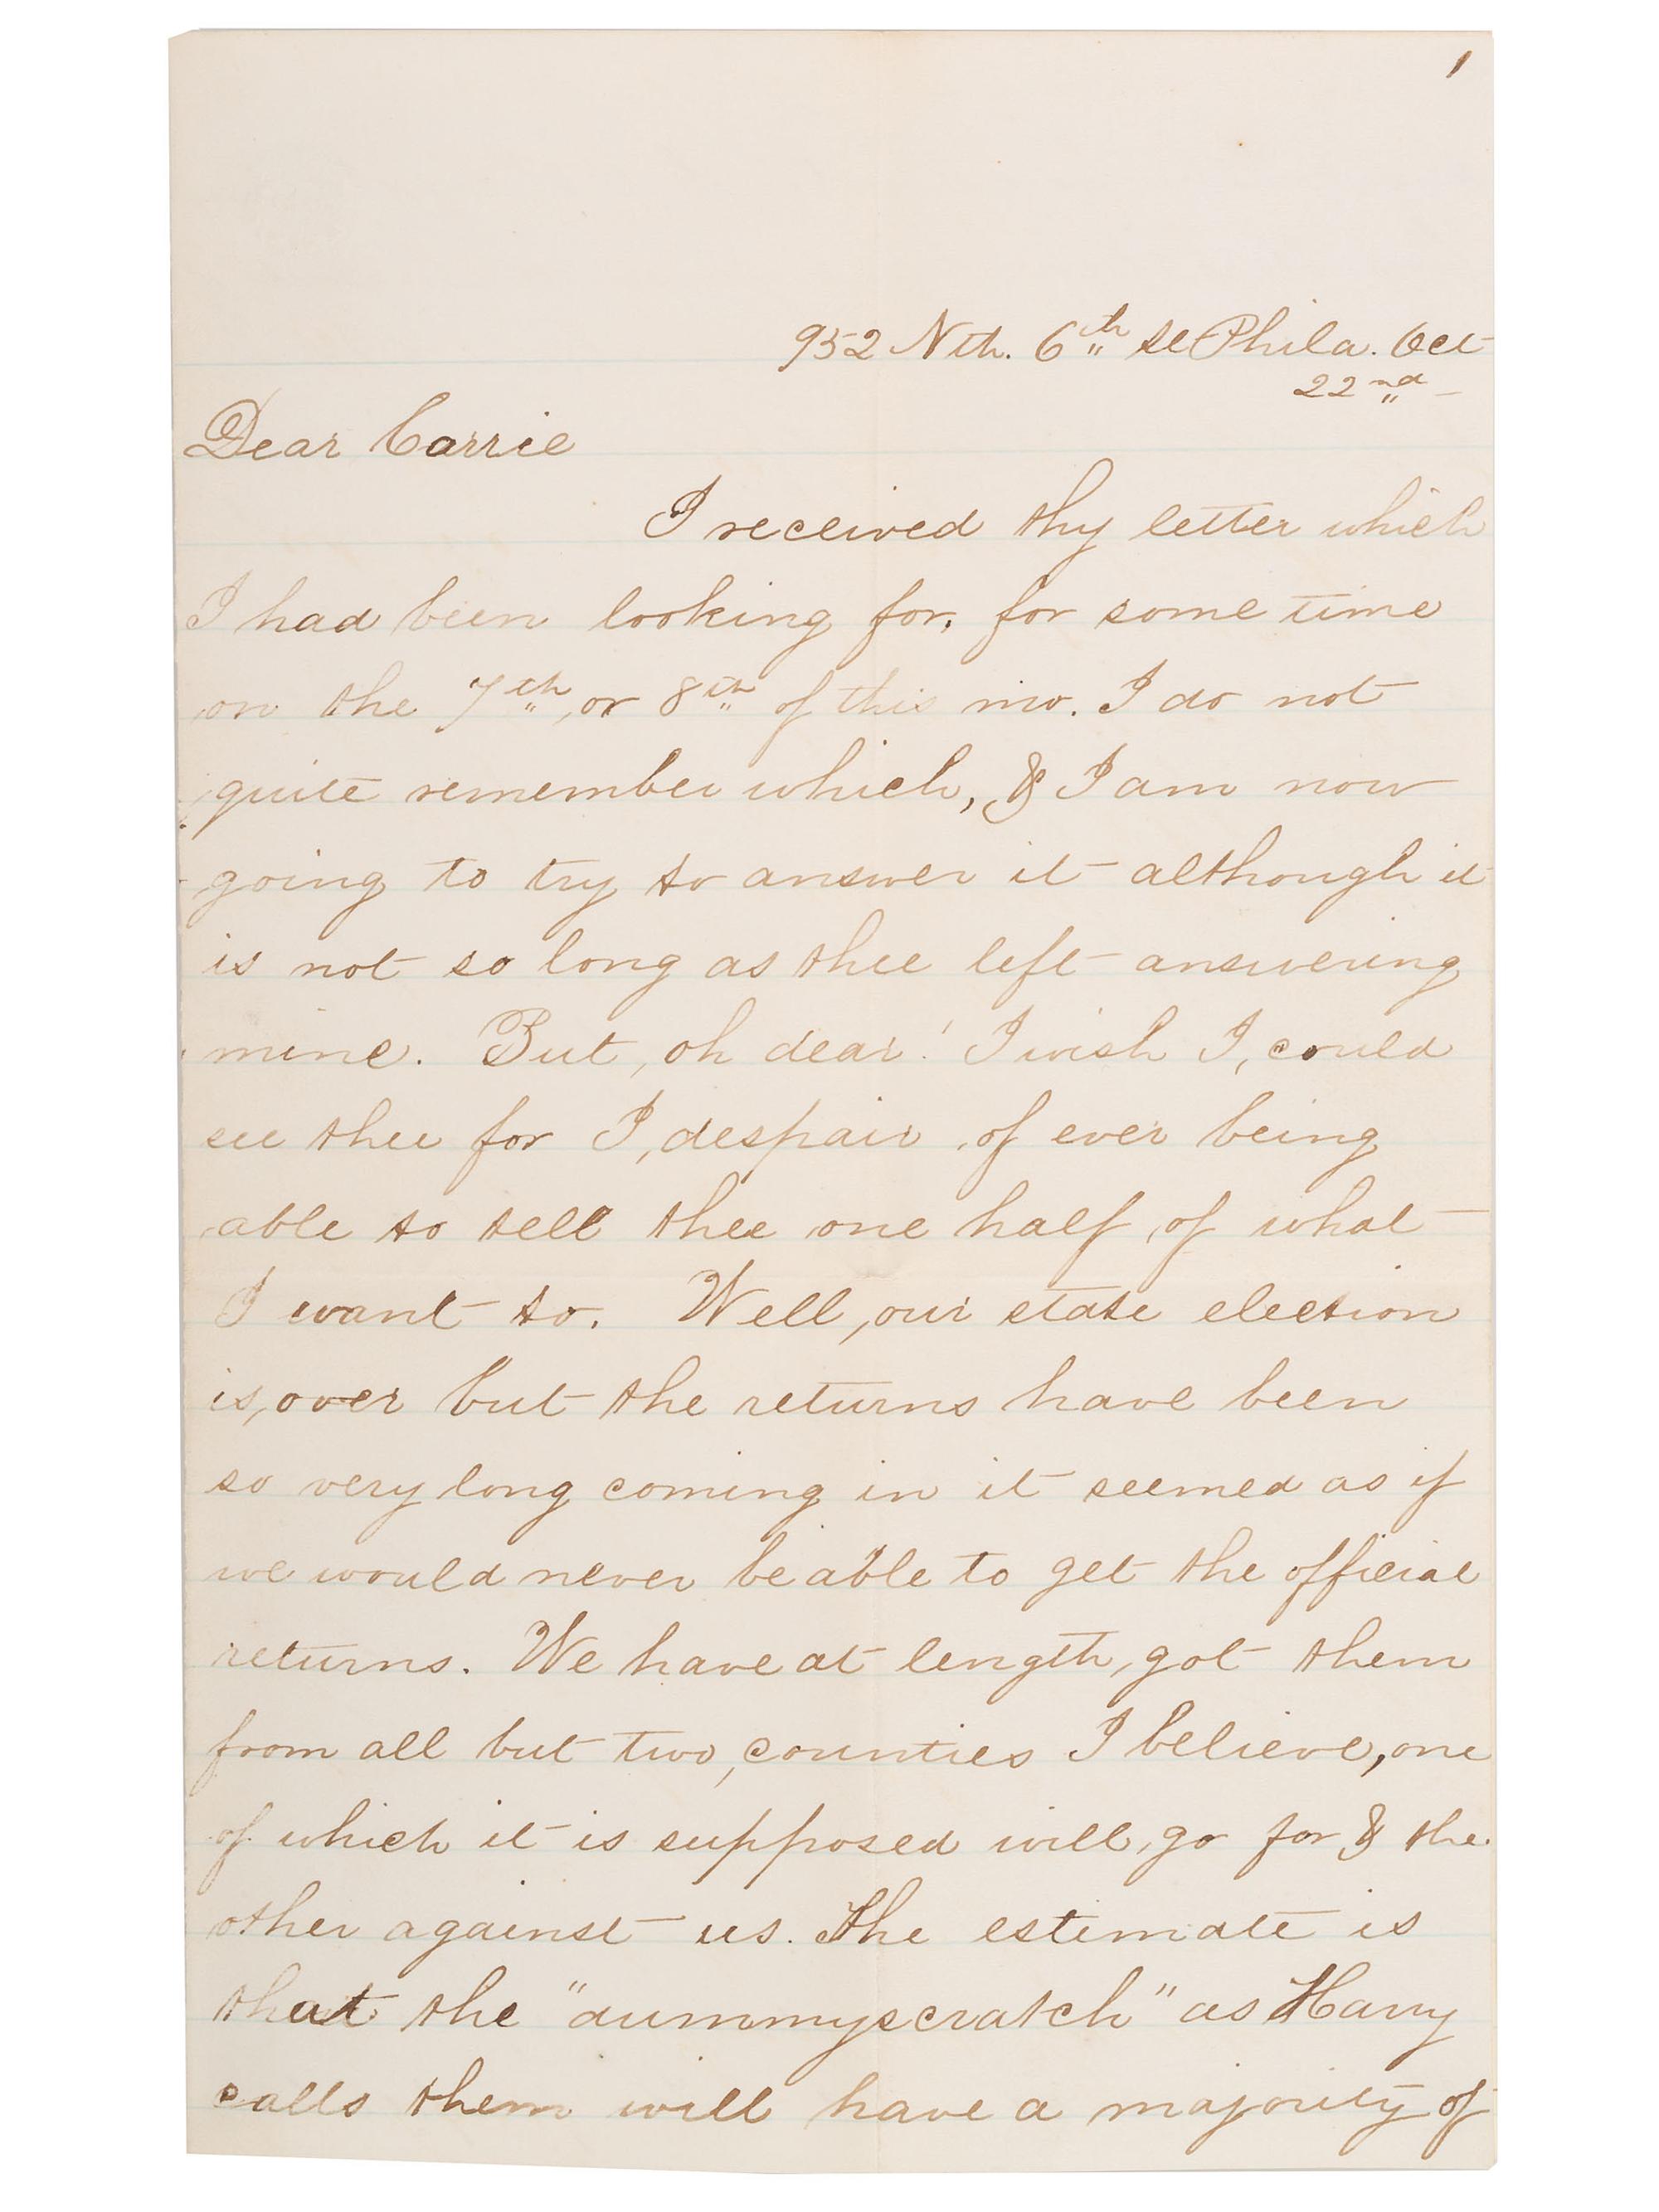 1
952 Nth. 6th st Phila. Oct
22nd
Dear Carrie
I received thy letter which
I had been looking for, for some time
on the 7th, or 8th of this mo. I do not
quite remember which, & I am now
going to try to answer it although it
is not so long as thee left answering
mine. But, oh dear! I wish I, could
see thee for I, despair, of ever being
able to tell thee one half, of what
I want to. Well, our state election
is, over but the returns have been
so very long coming in it seemed as if
we would never be able to get the official
returns. We have at length, got them
from all but two, counties I believe, one
of which it is supposed will, go for & the
other against us. The estimate is
that the "dummyscratch" as Harry
calls them will have a majority of